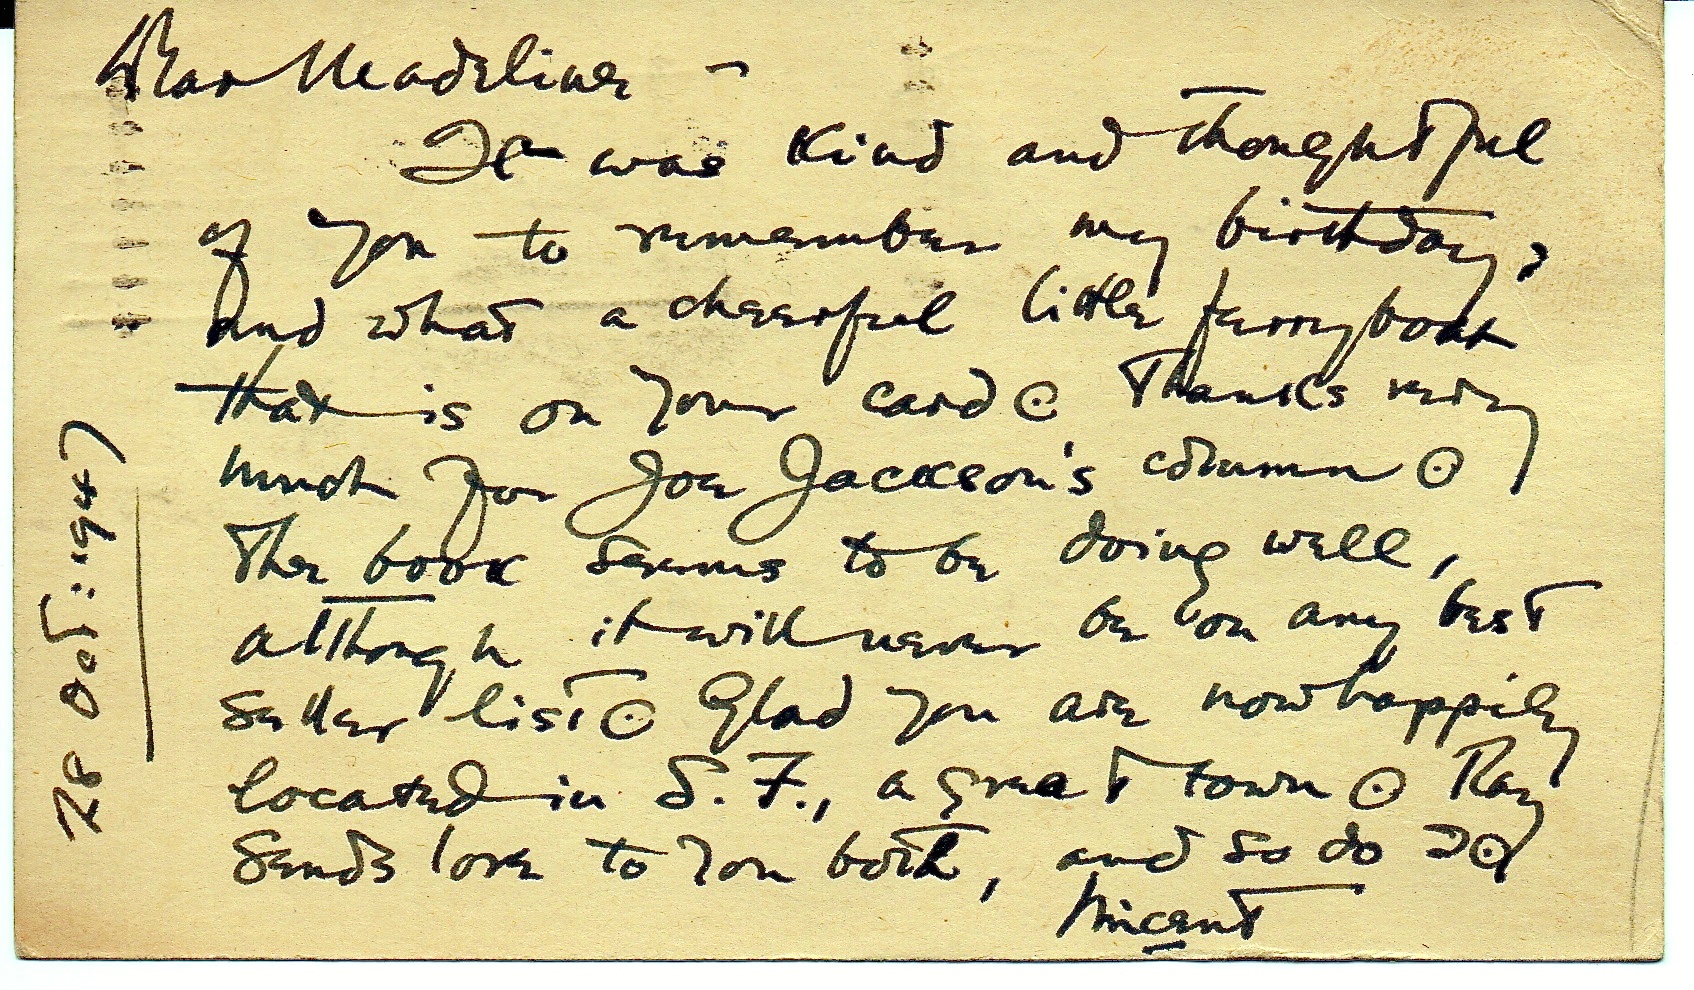 Dear Madeline –
It was kind and thoughtful
of you to remember my birthday,
and what a cheerful little ferryboat
that is on your card. Thanks very
much for Joe Jackson's column.
The book seems to be doing well,
although it will never be on any best
seller list. Glad you are now happily
located in S.F., a great town. Ray
sends love to you both, and so do I.
Vincent
28 Oct: '947